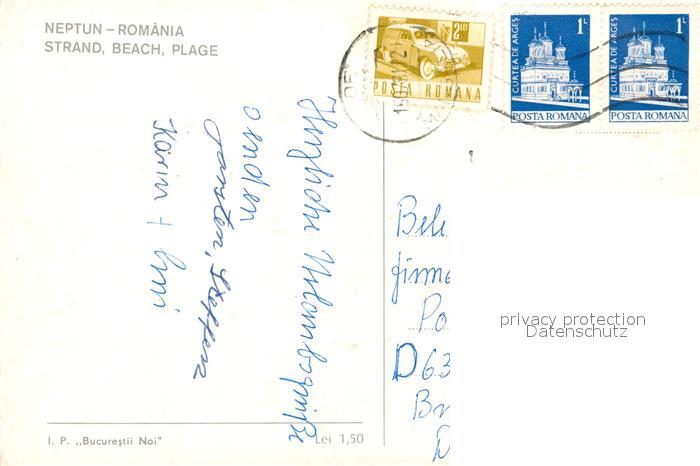 NEPTUN – ROMÂNIA
STRAND, BEACH, PLAGE
2.40
POSTA ROMANA
CURTEA DE ARGES
1L
POSTA ROMANA
CURTEA DE ARGES
1L
POSTA ROMANA
Herzliche Urlaubsgrüße
senden
Torsten, Steffen
Karin +
Bele
firme
Po
D63
Br
privacy protection
Datenschutz
I. P. „Bucureştii Noi"
Lei 1,50